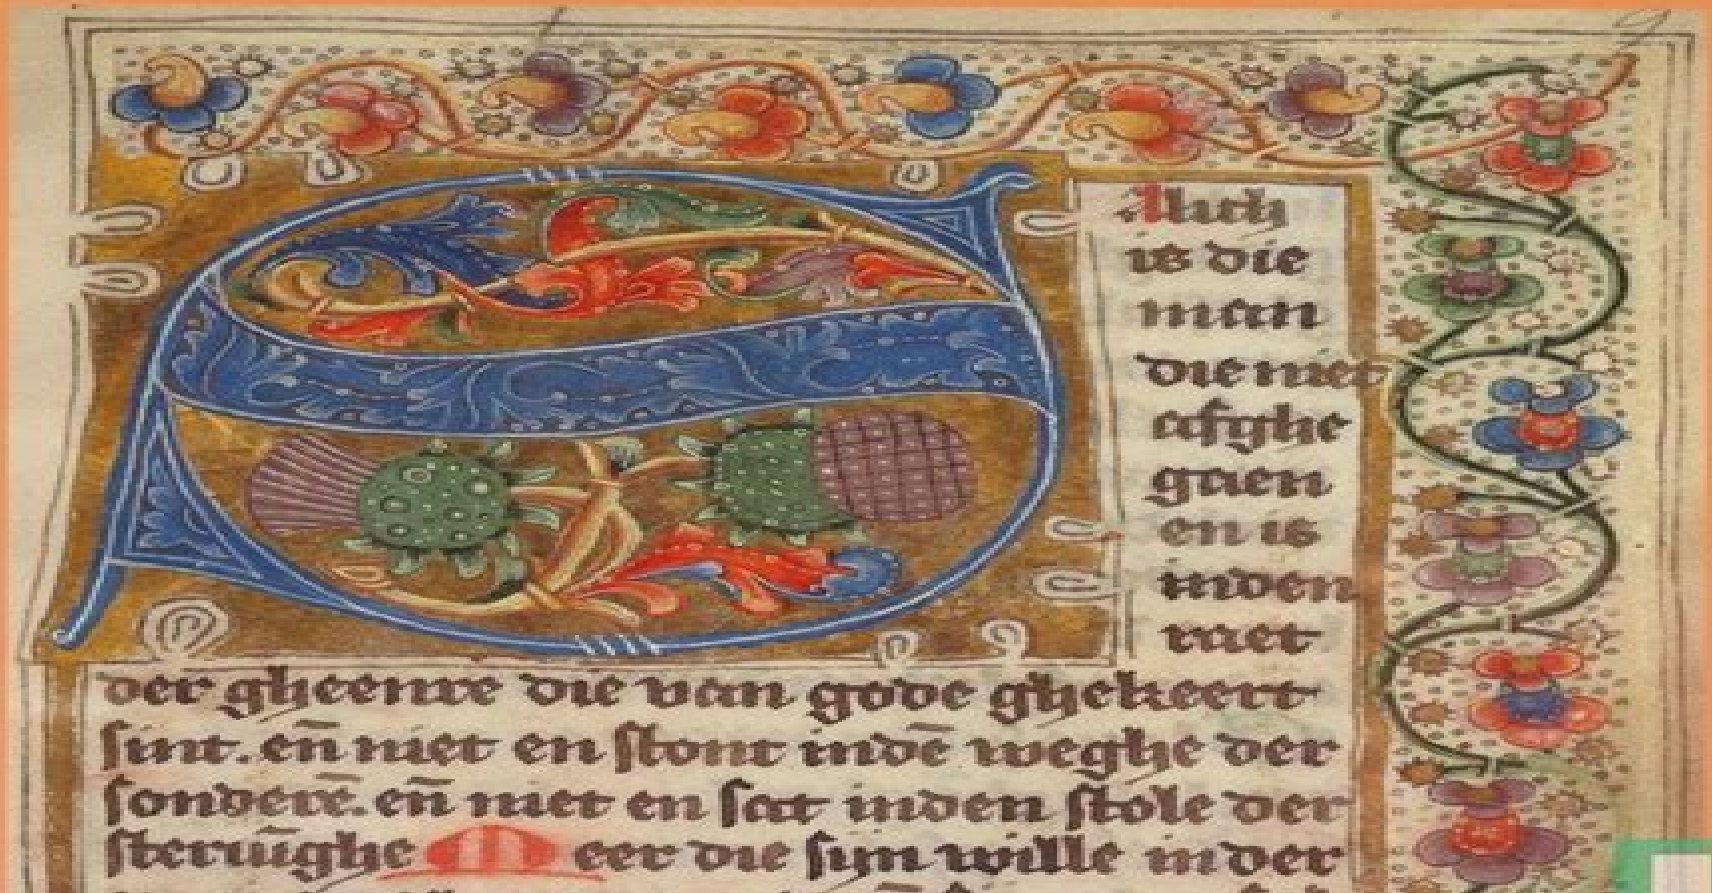 SAlich
is die
man
die niet
afghe
gaen
en is
inden
raet
der gheenre die van gode ghekeert
sint. en̄ niet en stont indē weghe der
sonderē. en̄ niet en sat inden stole der
steruīghe Meer die sijn wille in der